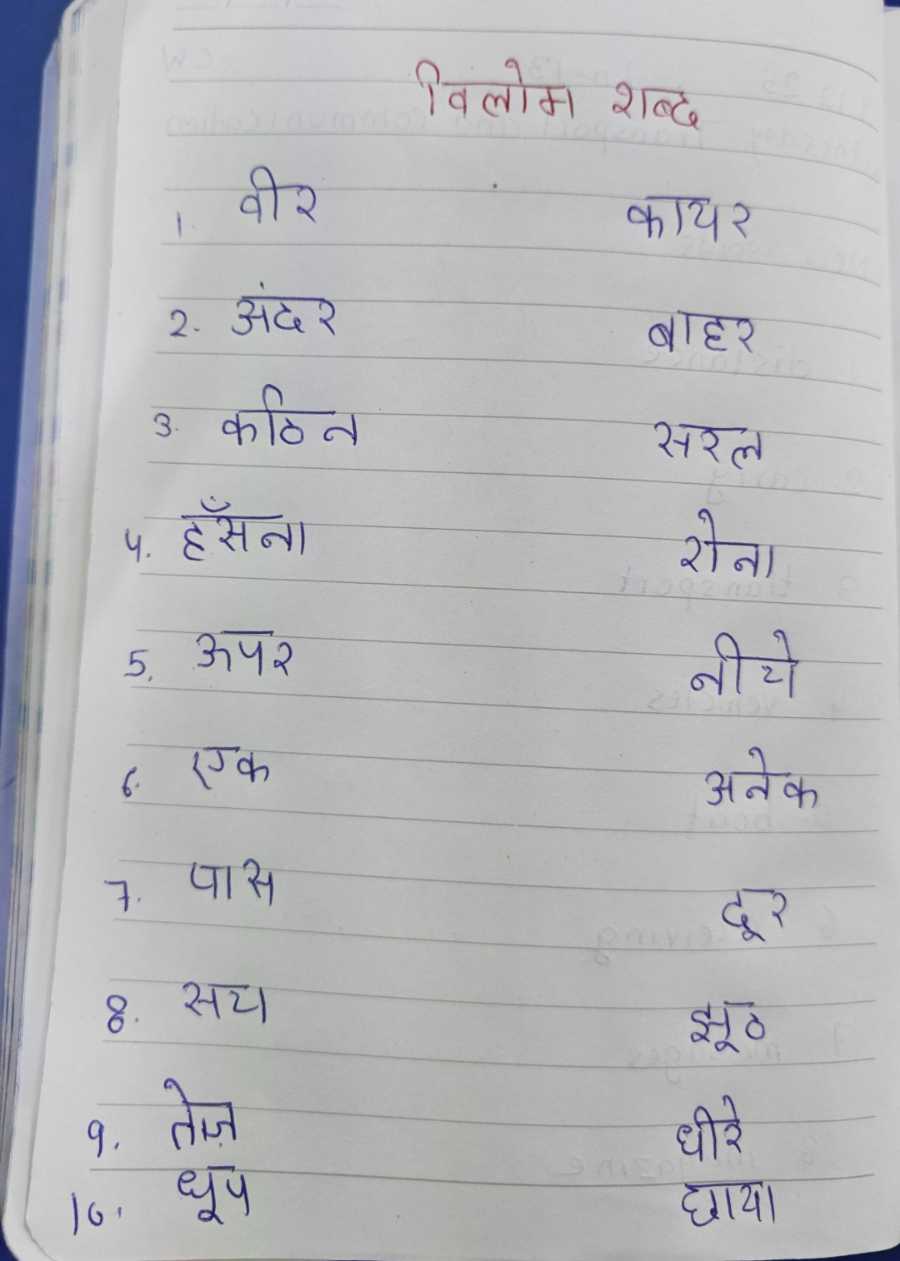 विलोम शब्द
1. वीर कायर
2. अंदर बाहर
3. कठिन सरल
4. हँसना रोना
5. ऊपर नीचे
6. एक अनेक
7. पास दूर
8. सच झूठ
9. तेज़ धीरे
10. धूप छाया